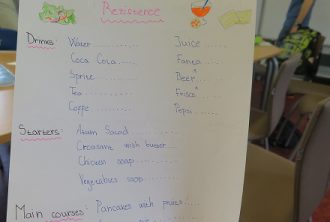 Rezistence
Drinks: Water.......... Juice..........
Coca Cola....... Fanta..........
Sprite.......... Beer*..........
Tea............. Frisco*........
Coppe........... Pepsi..........
Starters: Salad..........
Croasane with butter....
Chicken soap.......
Vegetables soap.......
Main courses: Pancakes with fruits....